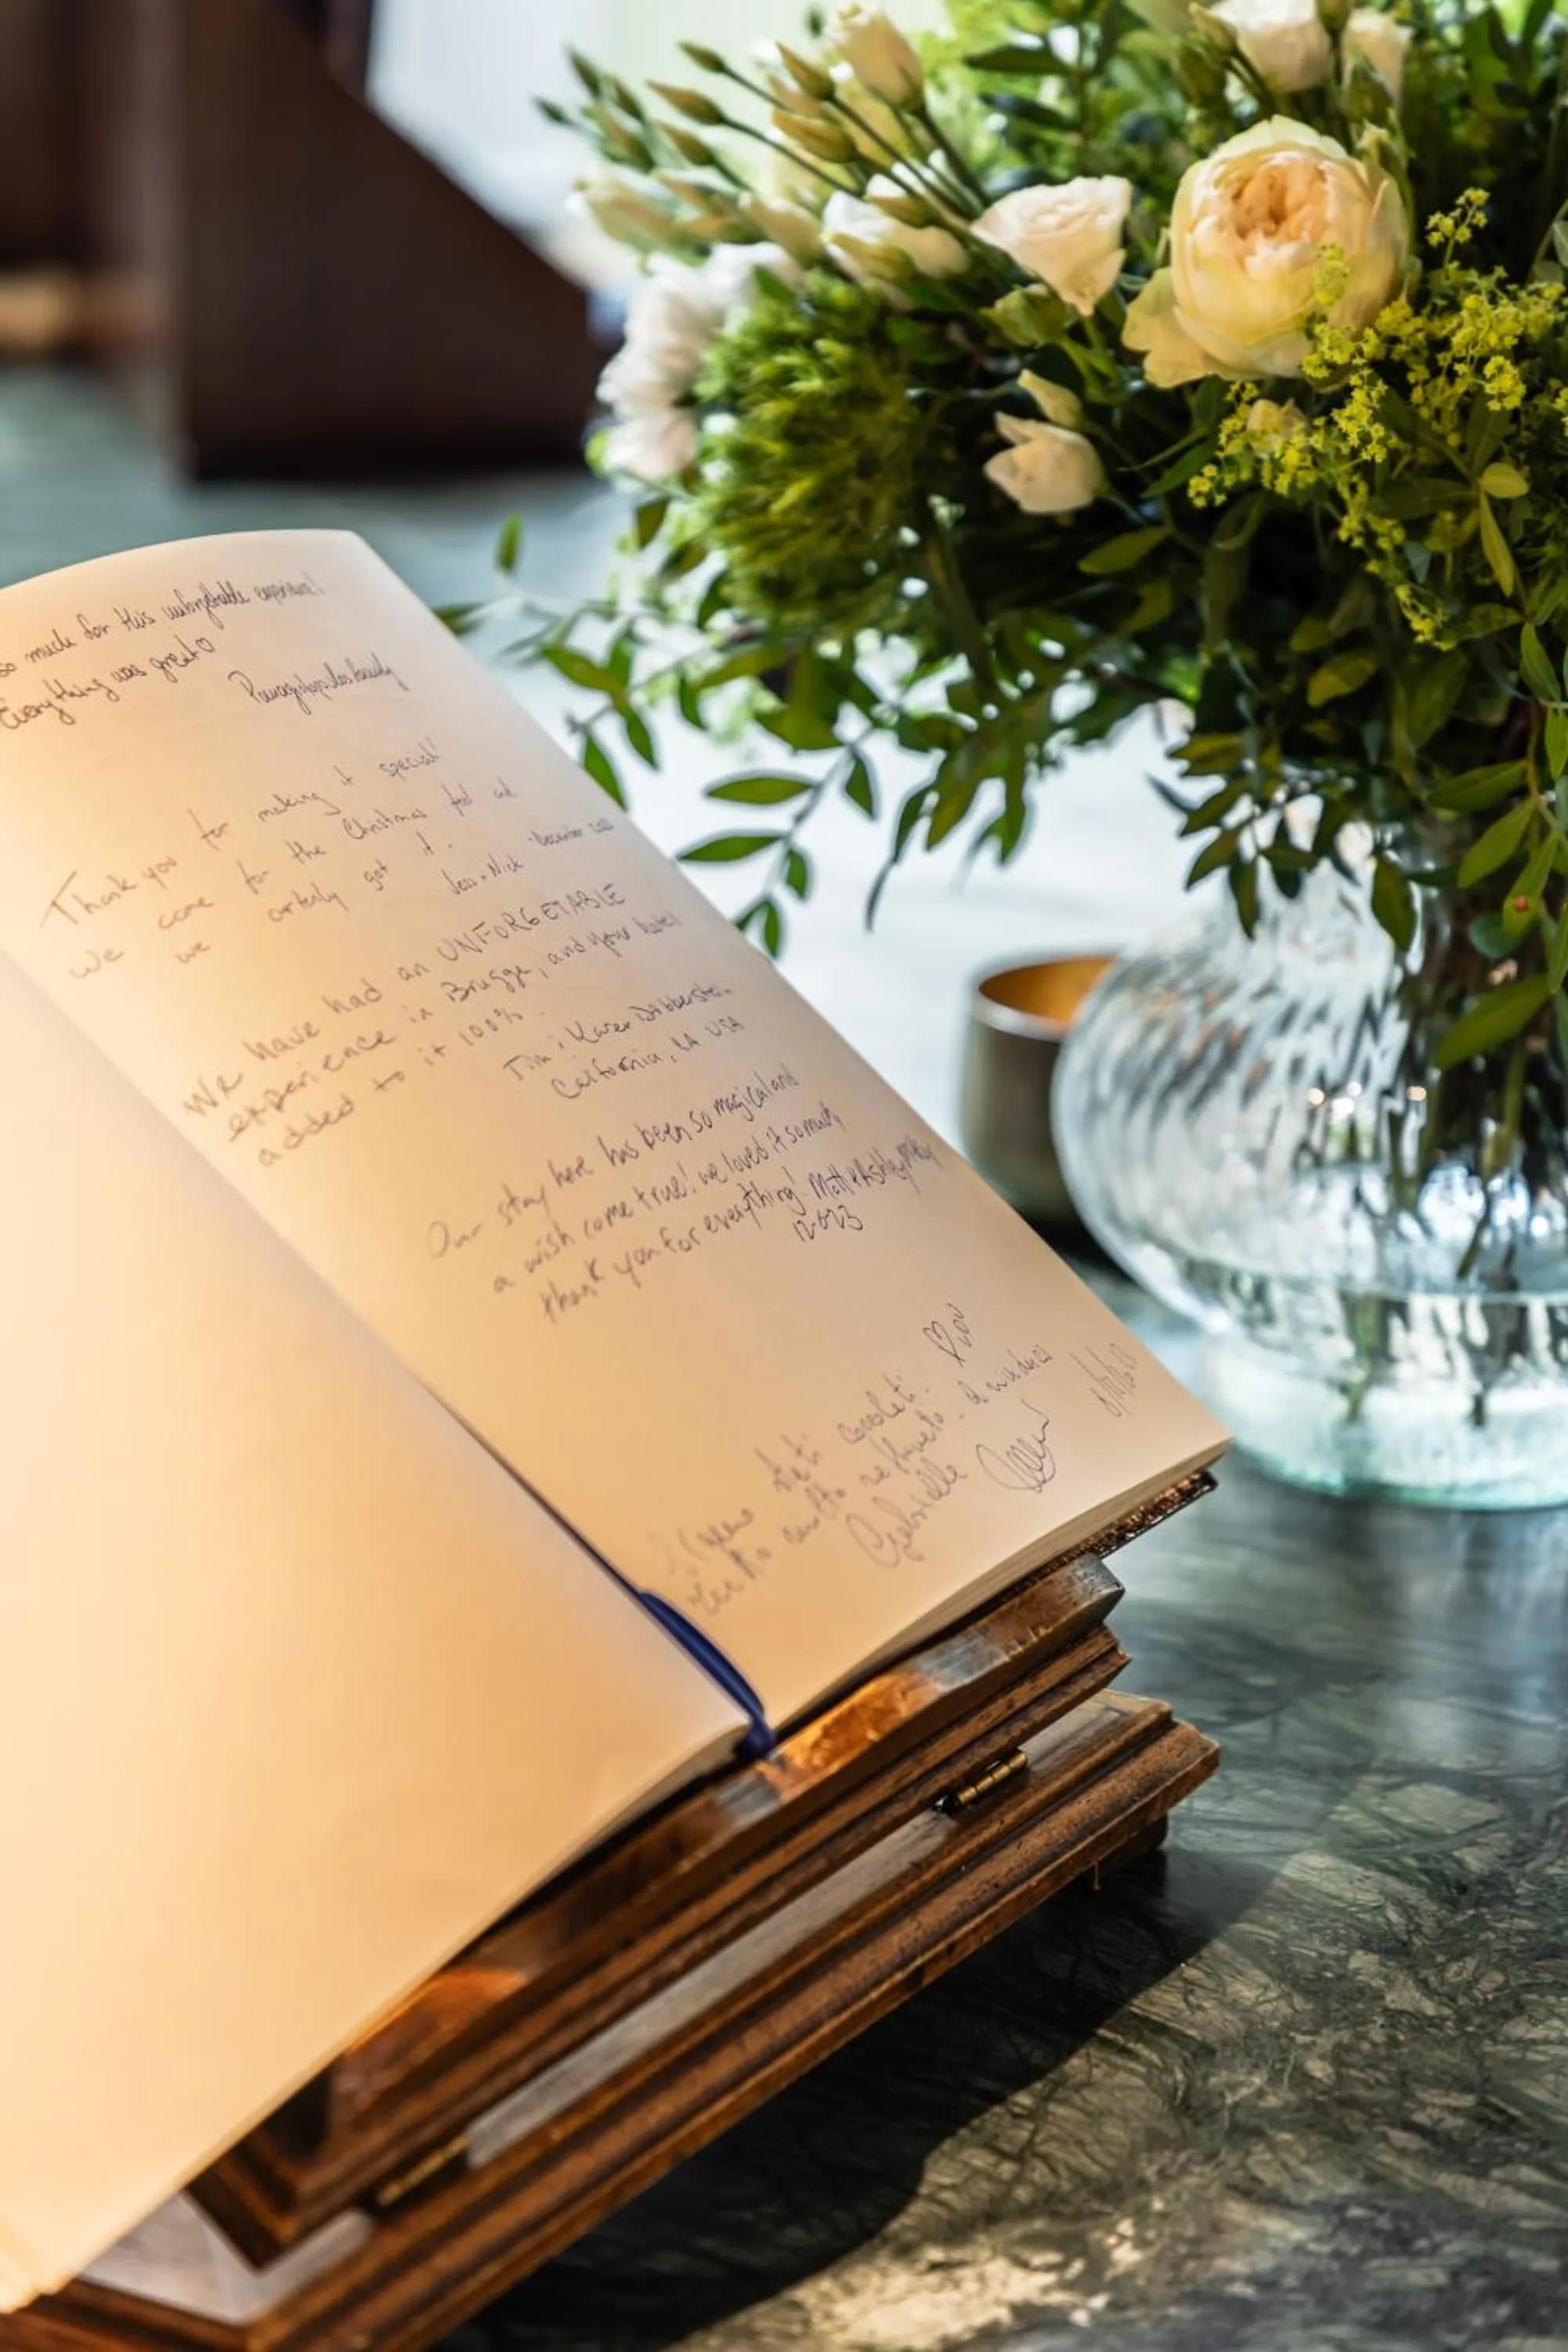 so much for this unforgettable experience!
Everything was great
family
Thank you for making it special!
We came for the Christmas feel and
we certainly got it.
Jess + Nick December
We have had an UNFORGETABLE
experience in Brugge, and your hotel
added to it 100%.
Tim & Karen
California, LA USA
Our stay here has been so magical and
a wish come true! we loved it so much,
thank you for everything! Matt & Ashley
12-023
Siamo stati
molto
Gabrielle